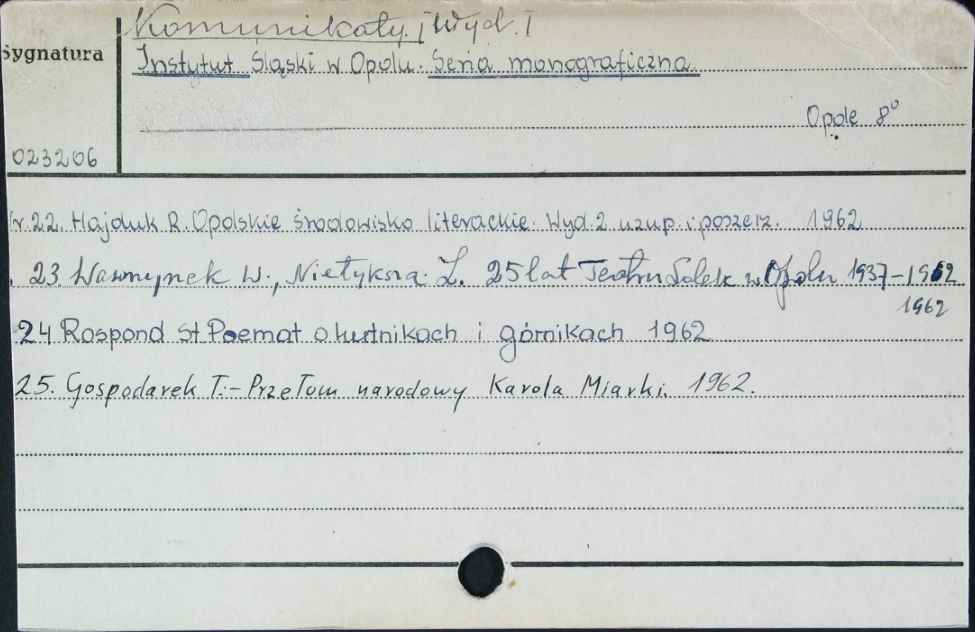 Komunikaty [Wyd.]
Sygnatura
Instytut Śląski w Opolu. Seria monograficzna
Opole 8°
023206
Nr.22. Hajduk R. Opolskie środowisko literackie. Wyd.2 uzup. i poszerz. 1962
23. Wawrzynek W., Nietyksza. Z. 25 lat Teatru Lalek w Opolu 1937-1962
1962
24 Rospond St Poemat o hutnikach i górnikach 1962
25. Gospodarek T.- Przełom narodowy Karola Miarki. 1962.